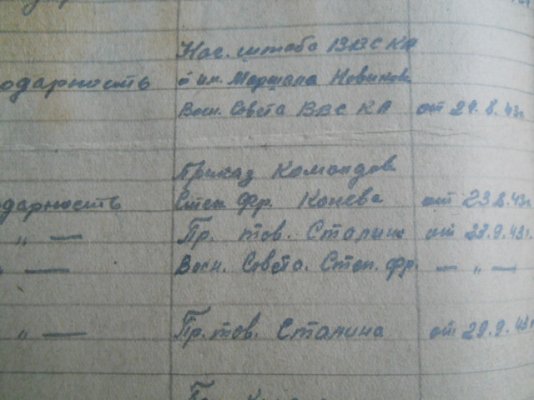 Нач. штаба ВВС КА
одарность от им. Маршала Новикова
Воен. Совета ВВС КА от 24.8.43г.
Приказ Командов
дарность Степ. Фр. Конева от 23.8.43г.
„ — Пр. тов. Сталина от 23.9.43г.
„ — Воен. Совета. Степ. фр. — „ —
„ — Пр. тов. Сталина от 29.9.43г.